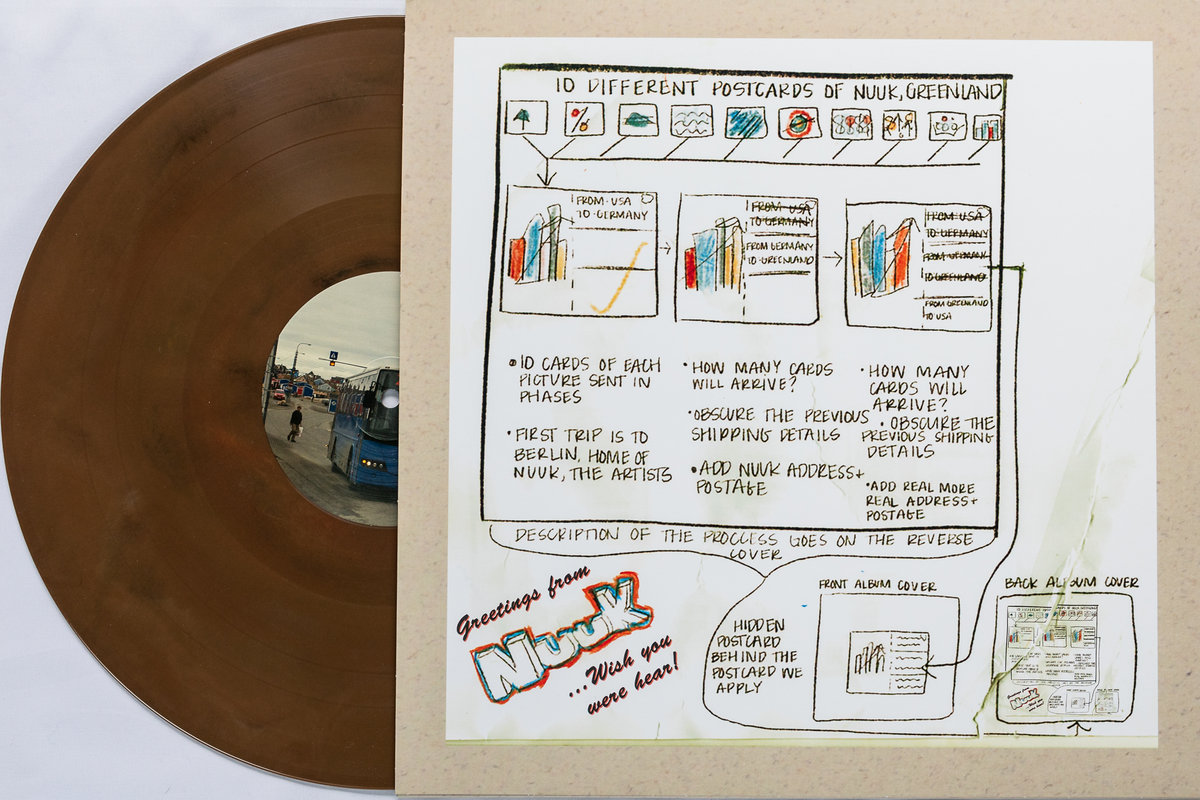 10 DIFFERENT POSTCARDS OF NUUK, GREENLAND
FROM·USA
TO·GERMANY
FROM·USA
TO·GERMANY
FROM GERMANY
TO·GREENLAND
FROM·USA
TO·GERMANY
FROM·GERMANY
TO·GREENLAND
FROM GREENLAND
TO USA
•10 CARDS OF EACH
PICTURE SENT IN
PHASES
•FIRST TRIP IS TO
BERLIN, HOME OF
NUUK, THE ARTISTS
•HOW MANY CARDS
WILL ARRIVE?
•OBSCURE THE PREVIOUS
SHIPPING DETAILS
•ADD NUUK ADDRESS+
POSTAGE
•HOW MANY
CARDS WILL
ARRIVE?
•OBSCURE THE
PREVIOUS SHIPPING
DETAILS
•ADD REAL MORE
REAL ADDRESS+
POSTAGE
DESCRIPTION OF THE PROCCESS GOES ON THE REVERSE
COVER
Greetings from
NuuK
...Wish you
were hear!
HIDDEN
POSTCARD
BEHIND THE
POSTCARD WE
APPLY
FRONT ALBUM COVER
BACK ALBUM COVER